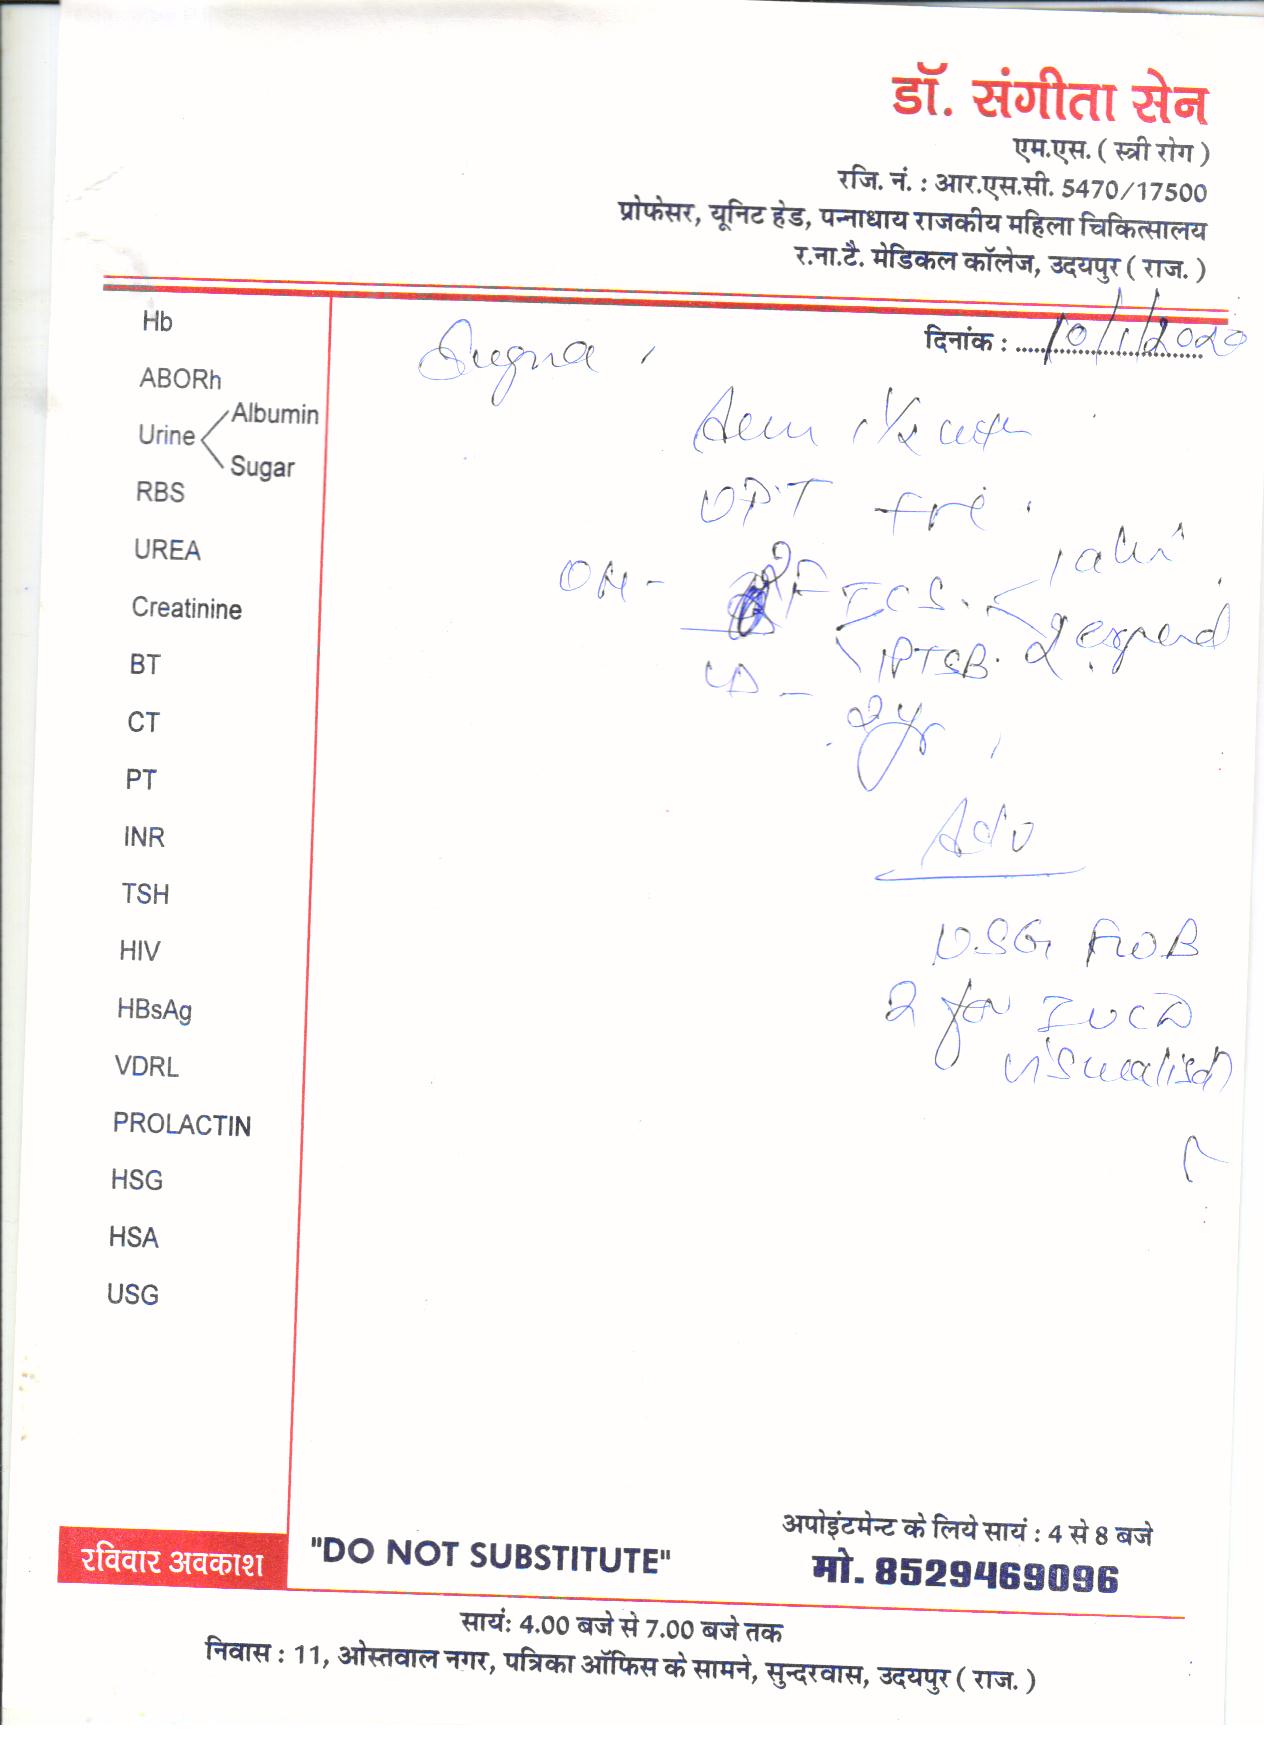 डॉ. संगीता सेन
एम.एस. ( स्त्री रोग )
रजि. नं. : आर.एस.सी. 5470/17500
प्रोफेसर, यूनिट हेड, पन्नाधाय राजकीय महिला चिकित्सालय
र.ना.टै. मेडिकल कॉलेज, उदयपुर ( राज. )
दिनांक : 10/1/2020
Hb
ABORh
Urine Albumin
Sugar
RBS
UREA
Creatinine
BT
CT
PT
INR
TSH
HIV
HBsAg
VDRL
PROLACTIN
HSG
HSA
USG
Sugna
Aem 1½
UPT
OH -
LD -
2yr
Adv
USG
2 for IUCD
रविवार अवकाश
"DO NOT SUBSTITUTE"
अपोइंटमेन्ट के लिये सायं : 4 से 8 बजे
मो. 8529469096
सायं: 4.00 बजे से 7.00 बजे तक
निवास : 11, ओस्तवाल नगर, पत्रिका ऑफिस के सामने, सुन्दरवास, उदयपुर ( राज. )